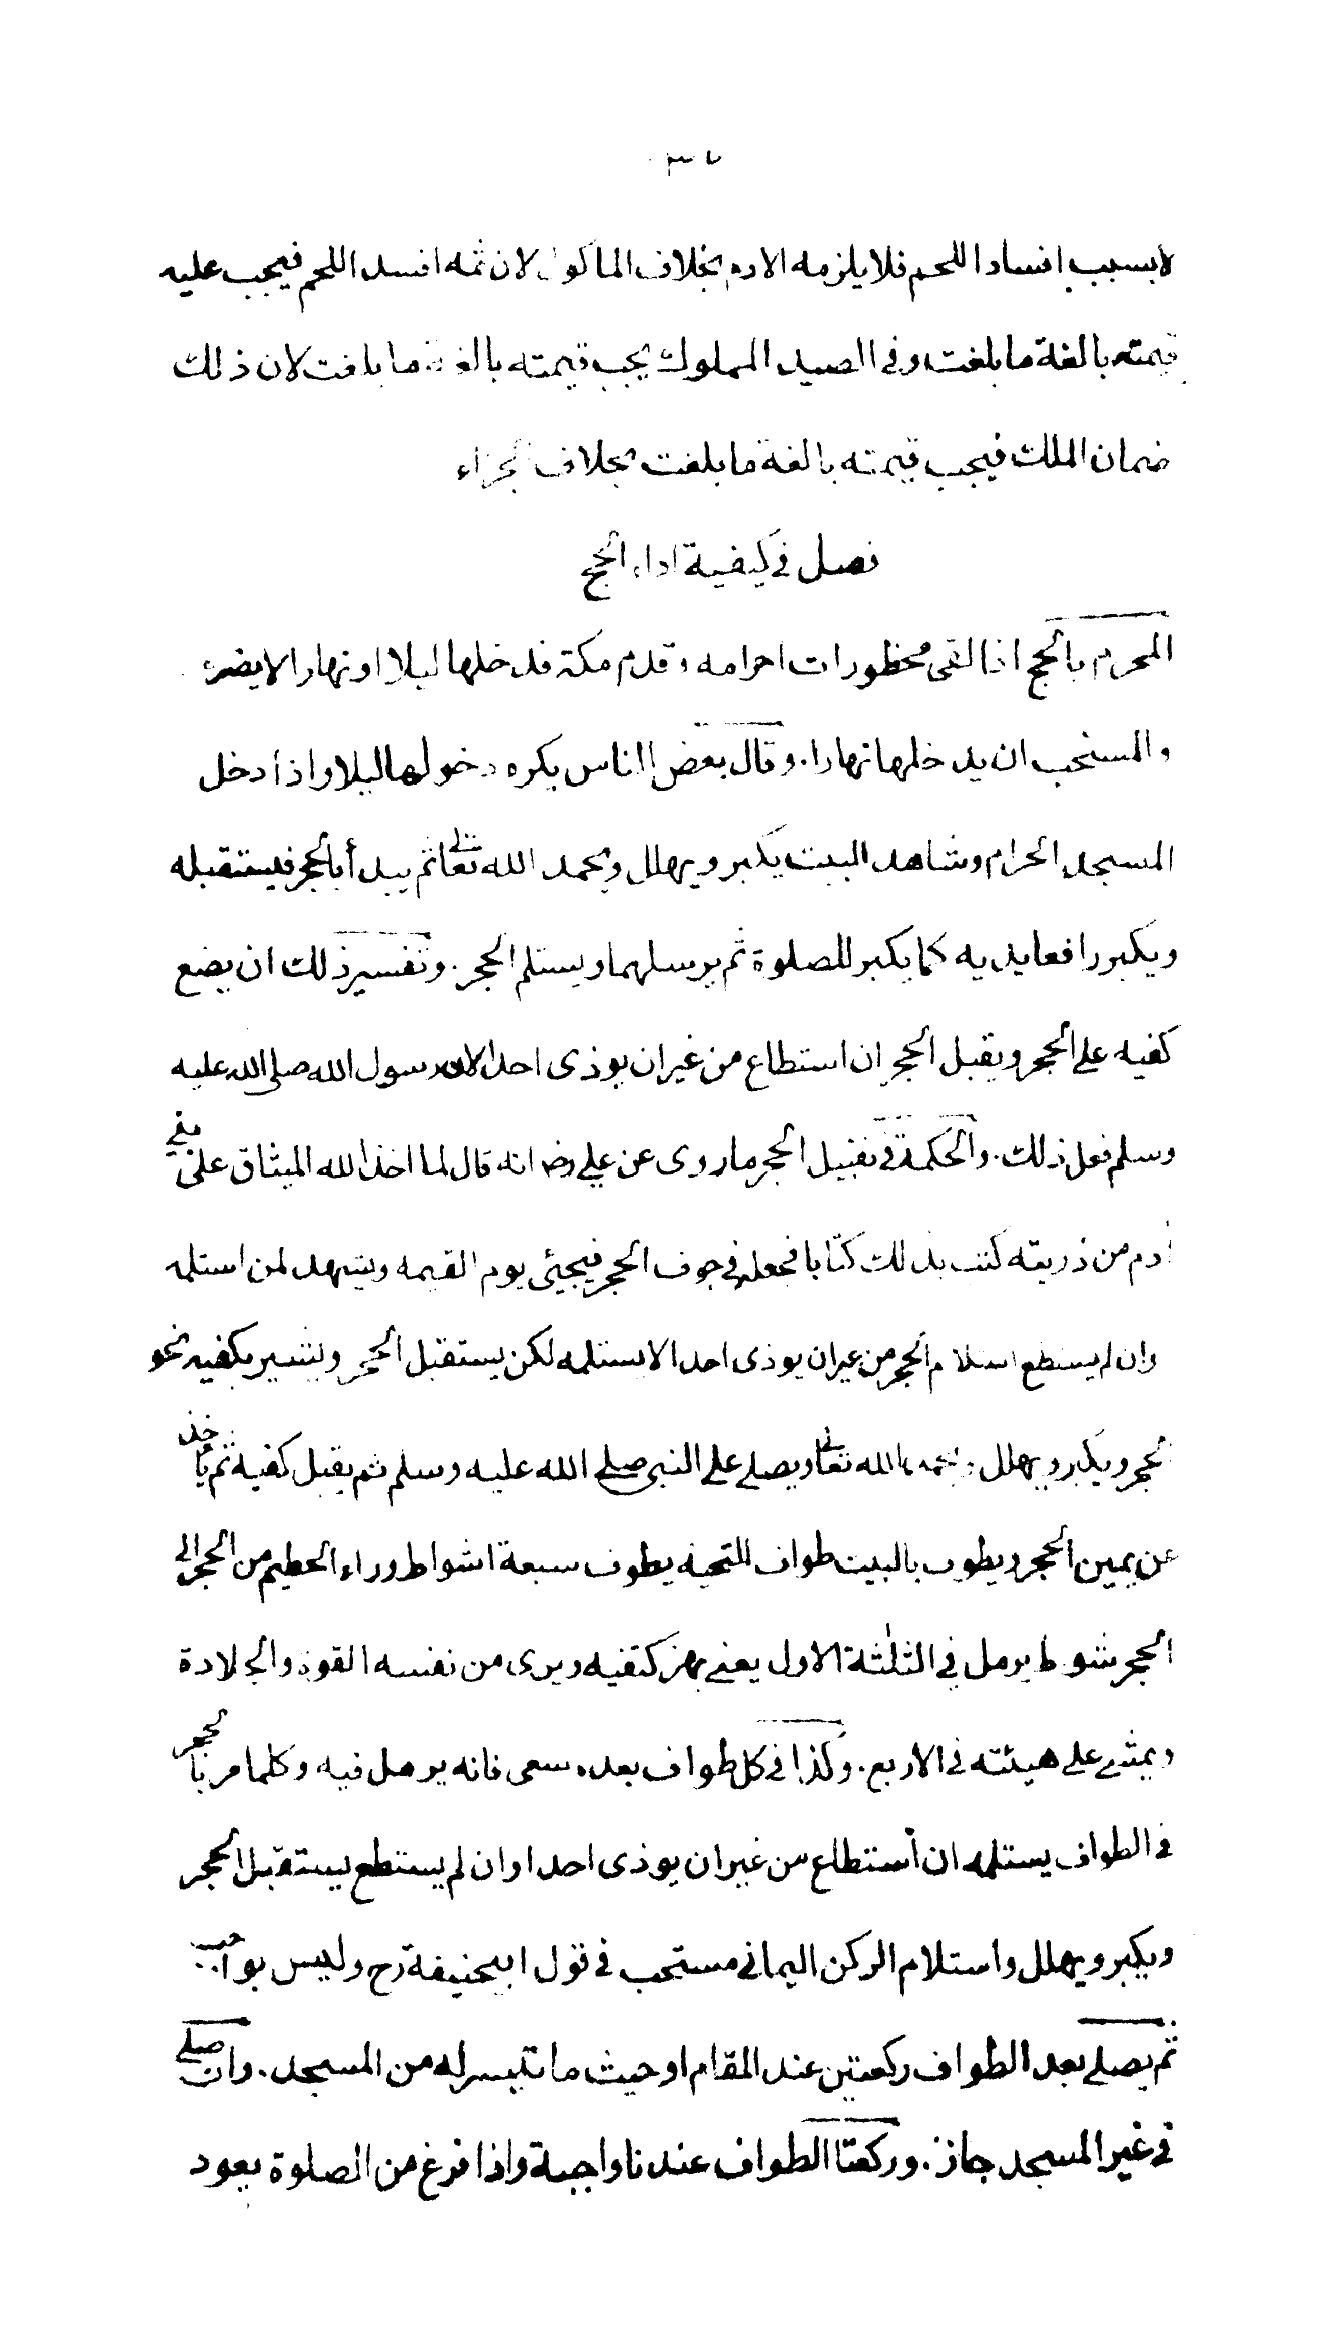 لا بسبب افساد اللحم فلا يلزمه الا دم بخلاف الماكول لان ثمه افسد اللحم فيجب عليه
قيمته بالغة ما بلغت وفى الصيد المملوك يجب قيمته بالغة ما بلغت لان ذلك
ضمان الملك فيجب قيمته بالغة ما بلغت بخلاف الجزاء
فصل فى كيفية اداء الحج
المحرم بالحج اذا اتقى محظورات احرامه وقدم مكة فدخلها ليلا او نهارا لا يضره
والمستحب ان يدخلها نهارا. وقال بعض الناس يكره دخولها ليلا واذا دخل
المسجد الحرام وشاهد البيت يكبر ويهلل ويحمد الله تعالى ثم يبدأ بالحجر فيستقبله
ويكبر رافعا يديه كما يكبر للصلوة ثم يرسلهما ويستلم الحجر. وتفسير ذلك ان يضع
كفيه على الحجر ويقبل الحجر ان استطاع من غير ان يوذى احدا لان رسول الله صلى الله عليه
وسلم فعل ذلك. والحكمة فى تقبيل الحجر ما روى عن على رضـ انه قال لما اخذ الله الميثاق على بنى
آدم من ذريته كتب بذلك كتابا فجعله فى جوف الحجر فيجيئ يوم القيمه ويشهد لمن استلمه
وان لم يستطع استلام الحجر من غير ان يوذى احدا لا يستلمه لكن يستقبل الحجر ويشير بكفيه نحو
الحجر ويكبر ويهلل ويحمد الله تعالى ويصلى على النبى صلى الله عليه وسلم ثم يقبل كفيه ثم ياخذ
عن يمين الحجر ويطوف بالبيت طواف التحية يطوف سبعة اشواط وراء الحطيم من الحجر الى
الحجر شوط يرمل فى الثلثة الاول يعنى يهز كتفيه ويرى من نفسه القوة والجلادة
ويمشى على هيئته فى الاربع. وكذا فى كل طواف بعده سعى فانه يرمل فيه وكلما مر بالحجر
فى الطواف يستلمه ان استطاع من غير ان يوذى احدا وان لم يستطع يستقبل الحجر
ويكبر ويهلل واستلام الركن اليمانى مستحب فى قول ابيحنيفة رح وليس بواجب
ثم يصلى بعد الطواف ركعتين عند المقام او حيث ما تيسر له من المسجد. وان صلى
فى غير المسجد جاز. وركعتا الطواف عندنا واجبة واذا فرغ من الصلوة يعود